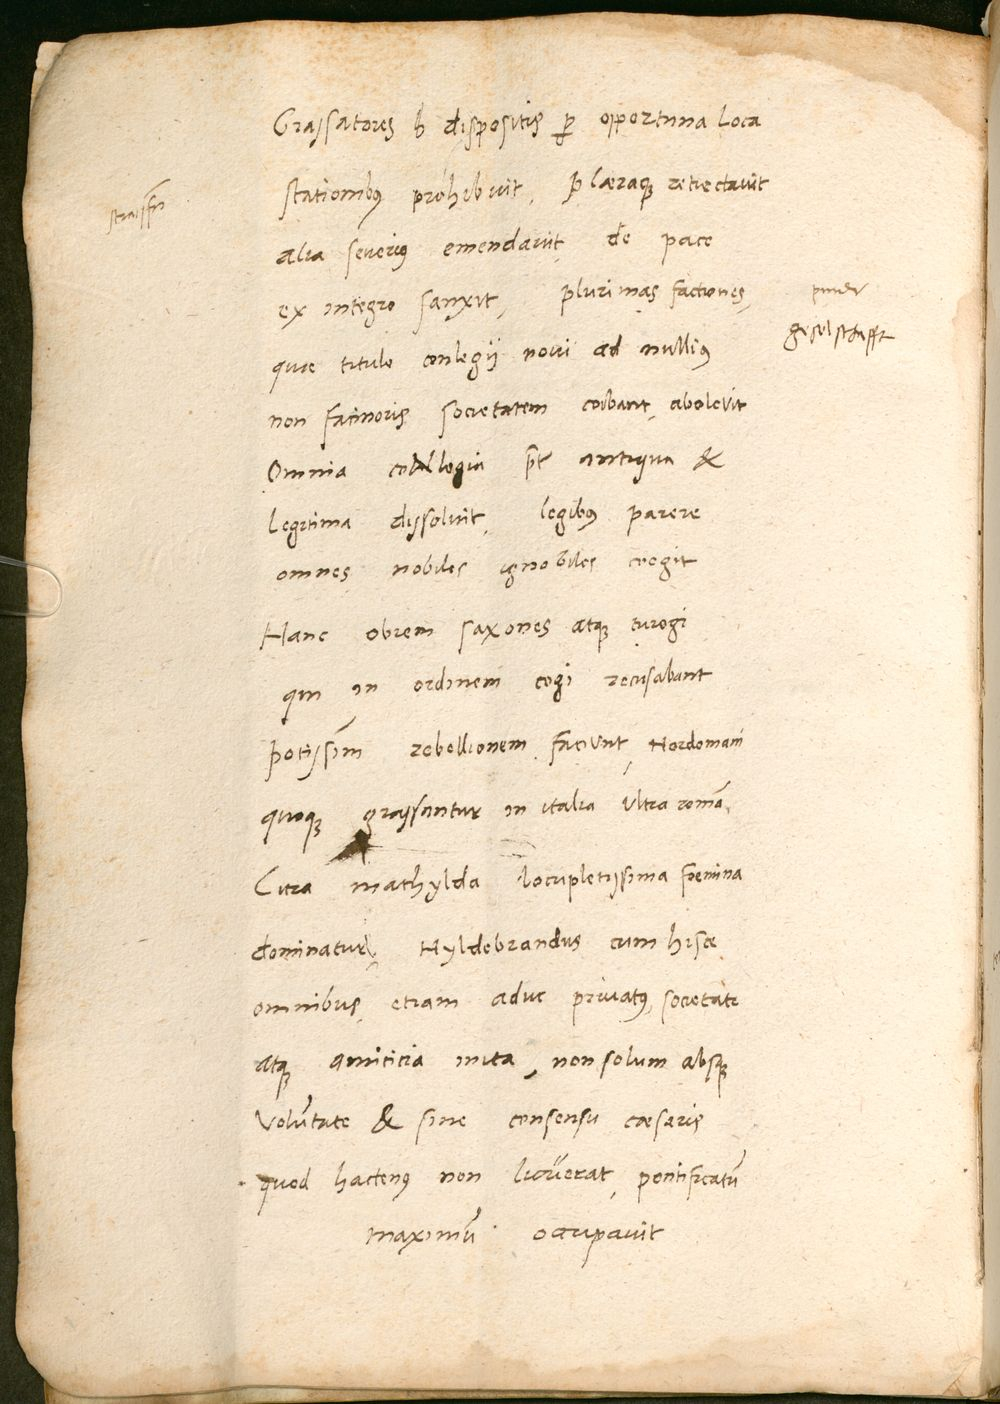 Grassatores ħ dispositis ꝑ opportuna loca
stationibꝰ prohibuit, p̱læraqꝫ retrectauit
straiffn̄
alia seuerius emendauit, de pace
ex integro sanxit, plurimas factiones,
punder
geselschafft
quæ titulo conlegij noui ad nulliꝰ
non facinoris societatem coibant, aboleuit
Omnia collegia p̄t antiqua &
legitima dissoluit, legibꝰ parere
omnes nobiles ignobiles coegit
Hanc obrem saxones atqꝫ turogi
qui in ordinem cogi recusabant
potissim̄ rebellionem faciunt, Nordomani
quoqꝫ grassantur in italia Vltra romā,
Citra mathylda locupletissima fœmina
dominatur, Hyldebrandus cum hisce
omnibus etiam aduc priuatꝰ, societate
atqꝫ amiticia inita, non solum absqꝫ
Volūtate & sine consensu cæsaris
quod hactenꝰ non licuerat, pontificatū
maximū occupauit